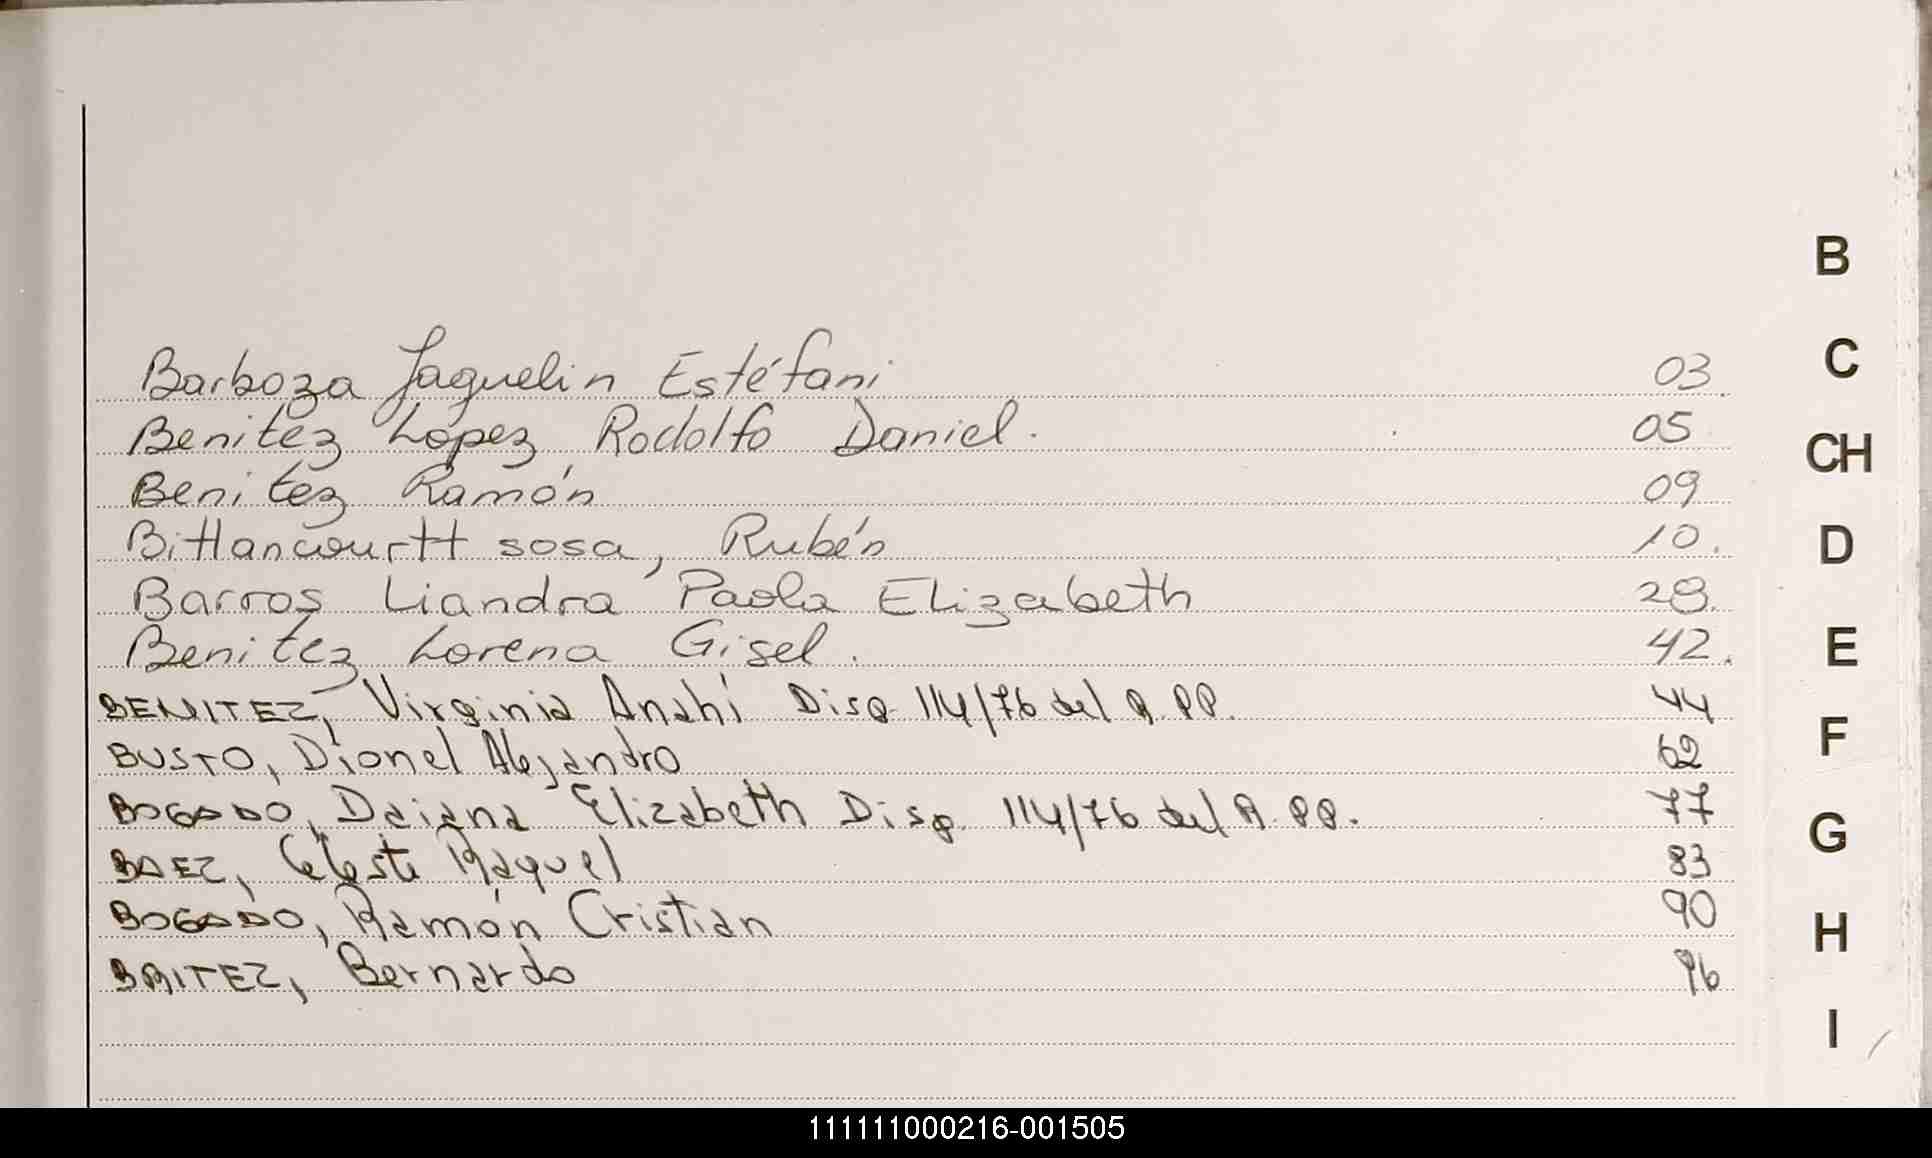 Barboza Jaquelin Estéfani 03
Benitez López, Rodolfo Daniel. 05
Benitez Ramón 09
Bittancourtt sosa, Rubén 10.
Barros Liandra Paola Elizabeth 28.
Benitez Lorena Gisel. 42.
BENITEZ, Virginia Anahí Disp. 114/76 del R.PP. 44
BUSTO, Dionel Alejandro 62
BOGADO, Daiana Elizabeth Disp. 114/76 del R.PP. 77
BAEZ, Celeste Raquel 83
BOGADO, Ramón Cristian 90
BRITEZ, Bernardo 96
B
C
CH
D
E
F
G
H
I
111111000216-001505